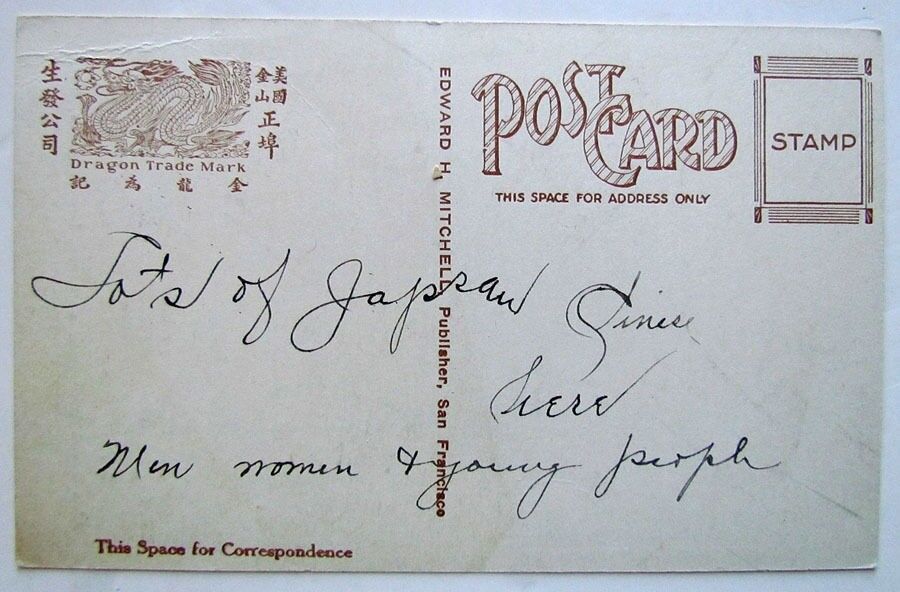 美國金山正埠
生發公司
Dragon Trade Mark
金龍為記
EDWARD H. MITCHELL, Publisher, San Francisco
POST CARD
THIS SPACE FOR ADDRESS ONLY
STAMP
Lots of Japs an Chinese
here
Men women & young people
This Space for Correspondence